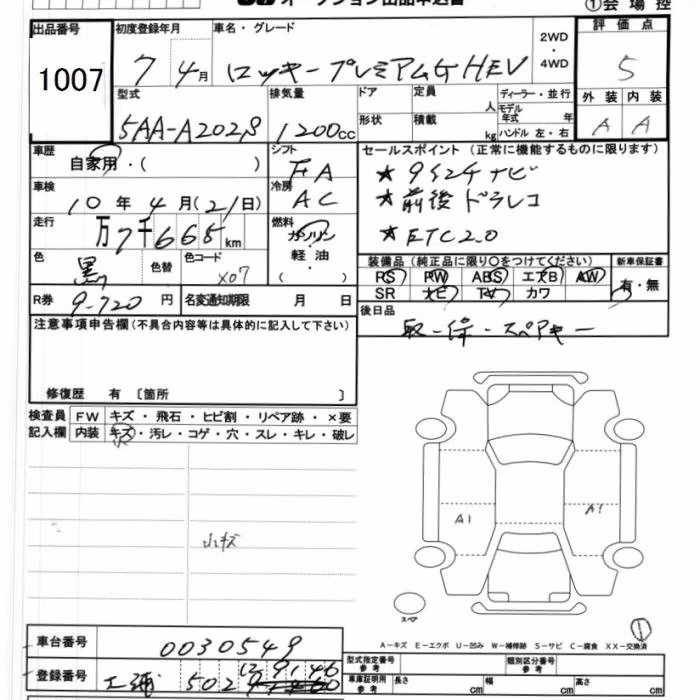 オークション出品申込書 ①会場控
出品番号 初度登録年月 車名・グレード 2WD・4WD 評価点
1007 7年4月 ロッキープレミアムG HEV 5
型式 排気量 ドア 定員 人 ディーラー・並行 外装 内装
5AA-A202S 1200cc 形状 積載 kg モデル年式 年 ハンドル 左・右 A A
車歴 自家用・( ) シフト FA セールスポイント (正常に機能するものに限ります)
車検 10年4月(21日) 冷房 AC ★9インチナビ
★前後ドラレコ
走行 万7千665km 燃料 ガソリン・軽油・( ) ★ETC2.0
色 黒 色替 色コード X07
装備品 (純正品に限り〇をつけてください) 新車保証書
PS PW ABS エアB AW 有・無
SR ナビ TV カワ
R券 9-720円 名変通知期限 月 日
後日品
取-保-スペアキー
注意事項申告欄(不具合内容等は具体的に記入して下さい)
修復歴 有 〔箇所 〕
検査員記入欄 FW キズ・飛石・ヒビ割・リペア跡・×要
内装 キズ・汚レ・コゲ・穴・スレ・キレ・破レ
小キズ
A1 A1
スペア
A-キズ E-エクボ U-凹み W-補修跡 S-サビ C-腐食 XX-交換済
車台番号 0030549
登録番号 502 129146
型式指定番号 参考 類別区分番号 参考
車庫証明用 参考 長さ cm 幅 cm 高さ cm